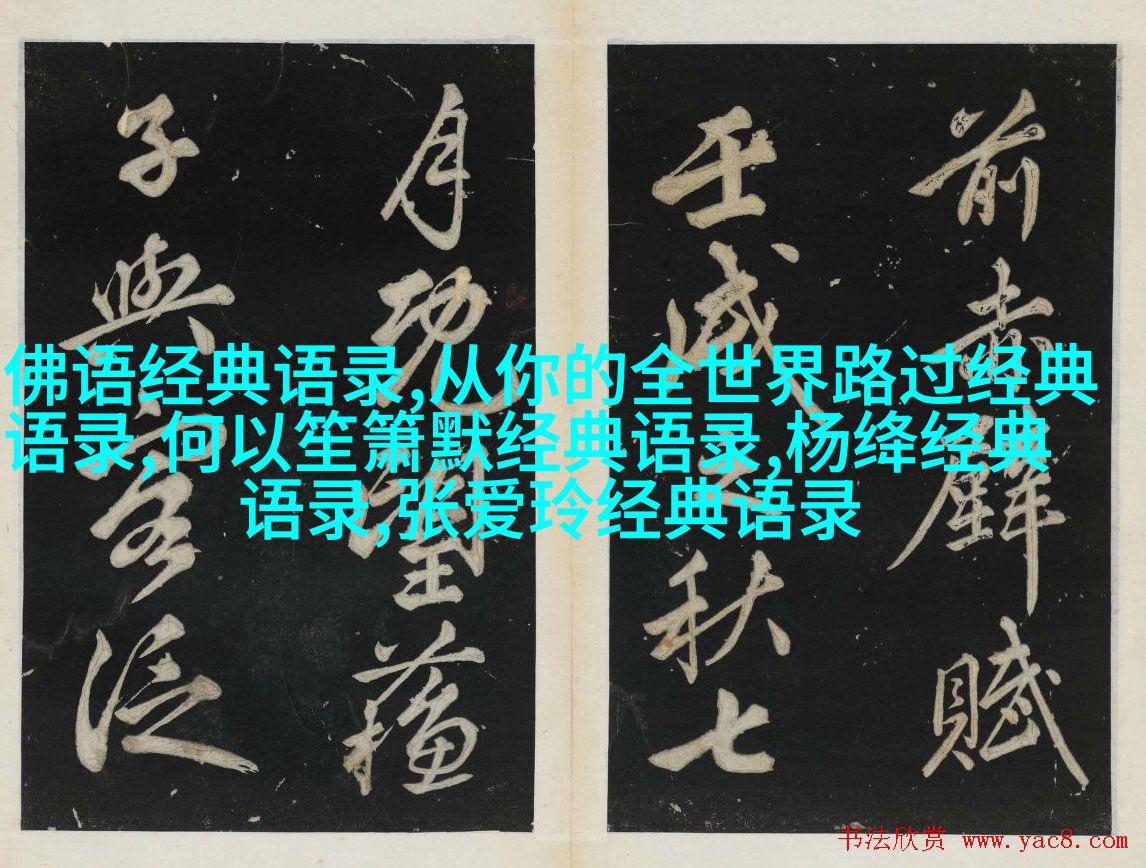 前赤壁賦
壬戌之秋七
月既望蘓
子與客泛
佛语经典语录,从你的全世界路过经典
语录,何以笙箫默经典语录,杨绛经典
语录,张爱玲经典语录
书法欣赏 www.yac8.com